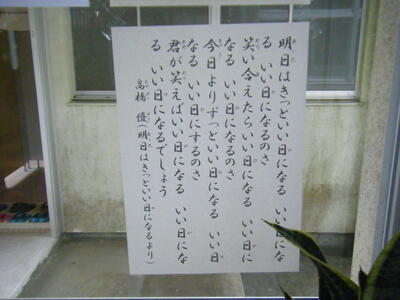 明日はきっといい日になる いい日にな
る いい日になるのさ
笑い合えたらいい日になる いい日に
なる いい日になるのさ
今日よりずっといい日になる いい日
なる いい日にするのさ
君が笑えばいい日になる いい日にな
る いい日になるでしょう
高橋 優(明日はきっといい日になるより)